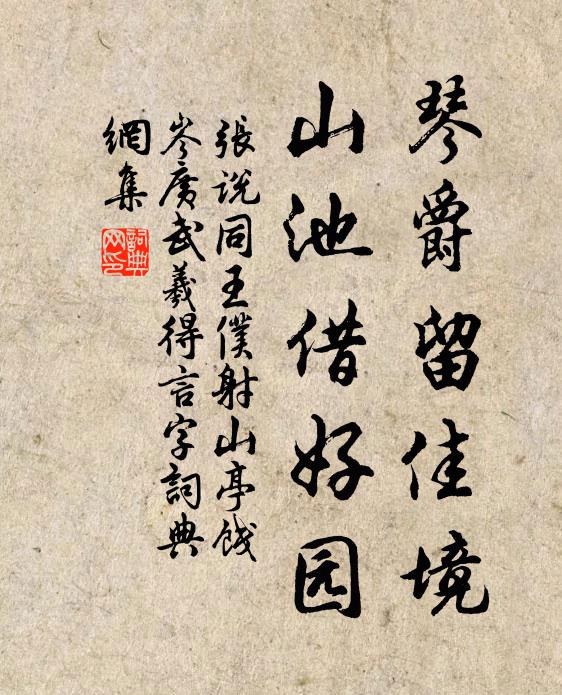 琴爵留佳境
山池借好园
張説同王僕射山亭餞
岑廣武羲得言字詞典
網集
詞典
网印